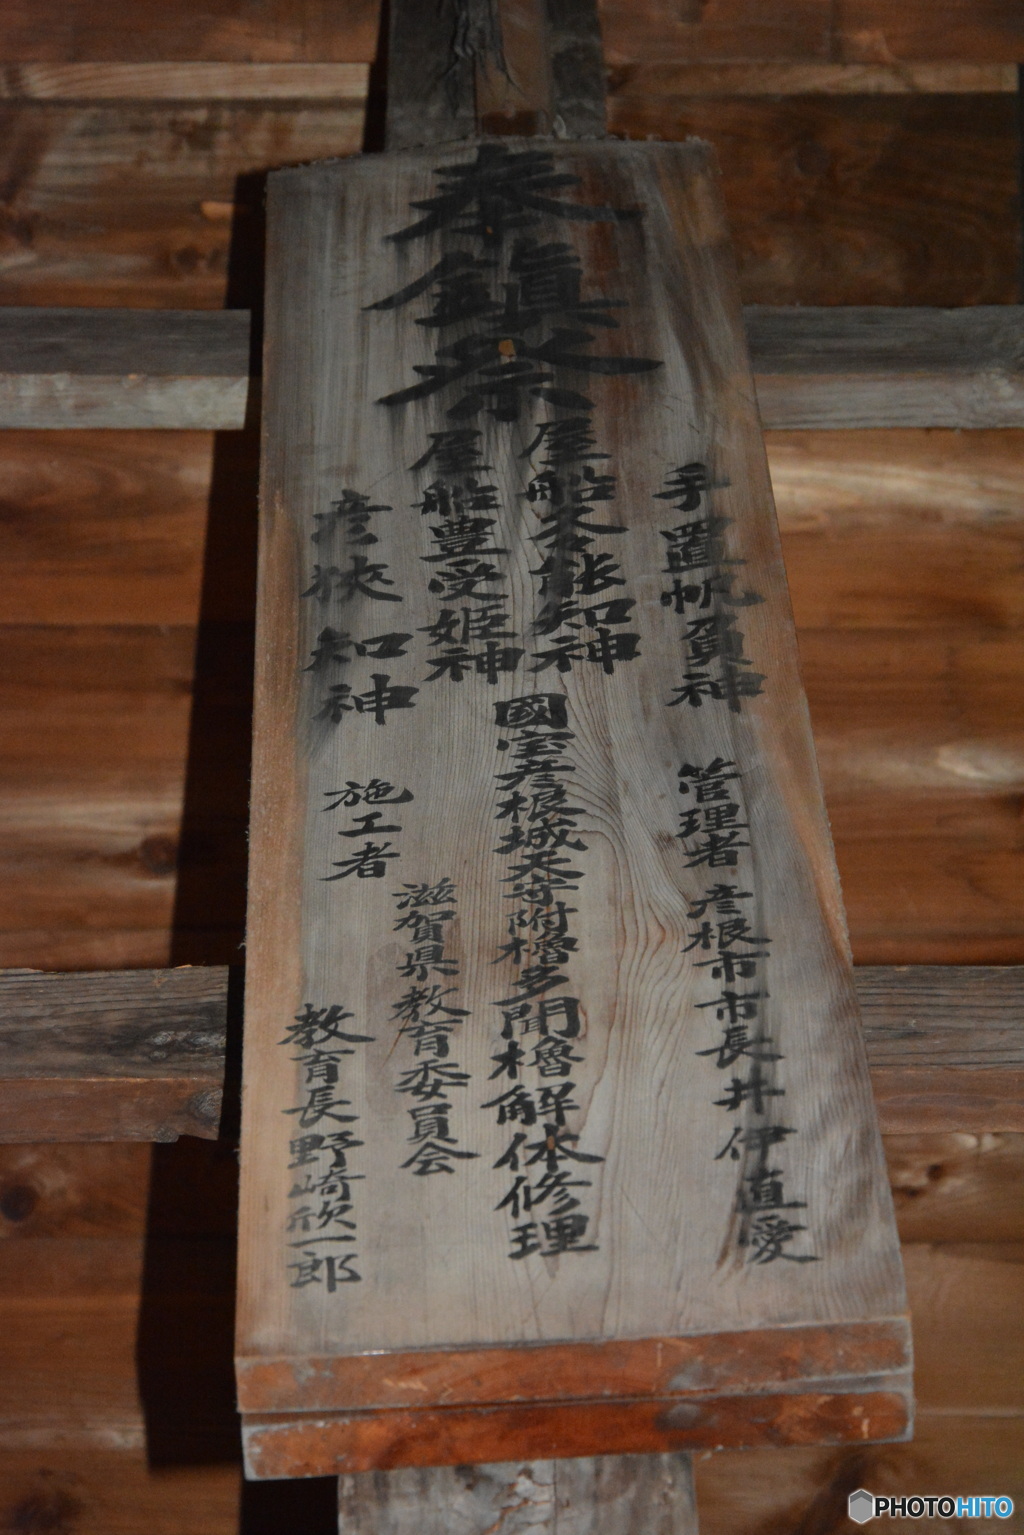 奉鎮祭
手置帆負神
屋船久久能知神
屋船豊受姫神
彦狭知神
管理者 彦根市市長井伊直愛
國宝彦根城天守附櫓多聞櫓解体修理
施工者
滋賀県教育委員会
教育長野崎欣一郎
PHOTOHITO